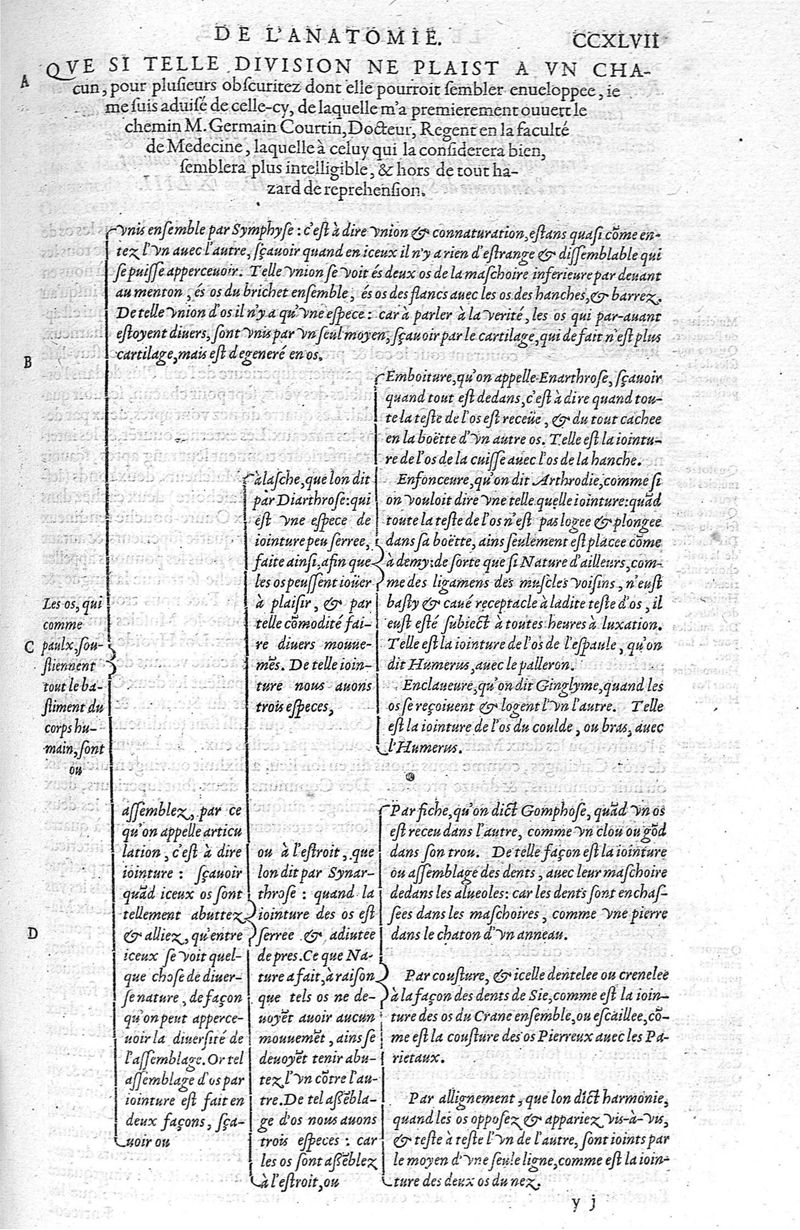 DE L'ANATOMIE.
CCXLVII
A
QVE SI TELLE DIVISION NE PLAIST A VN CHA-
cun, pour plusieurs obscuritez dont elle pourroit sembler enueloppee, ie
me suis aduisé de celle-cy, de laquelle m'a premierement ouuert le
chemin M. Germain Courtin, Docteur, Regent en la faculté
de Medecine, laquelle à celuy qui la considerera bien,
semblera plus intelligible, & hors de tout ha-
zard de reprehension.
Vnis ensemble par Symphyse : c'est à dire Vnion & connaturation, estans quasi cõme en-
tez l'vn auec l'autre, sçauoir quand en iceux il n'y a rien d'estrange & dissemblable qui
se puisse apperceuoir. Telle Vnion se voit és deux os de la maschoire inferieure par deuant
au menton, és os du brichet ensemble, és os des flancs auec les os des hanches, & barrez.
De telle Vnion d'os il n'y a qu'vne espece : car à parler à la verité, les os qui par-auant
estoyent diuers, sont Vnis par Vn seul moyen, sçauoir par le cartilage, qui de fait n'est plus
cartilage, mais est degeneré en os.
B
Emboiture, qu'on appelle Enarthrose, sçauoir
quand tout est dedans, c'est à dire quand tou-
te la teste de l'os est receüe, & du tout cachee
en la boëtte d'vn autre os. Telle est la iointu-
re de l'os de la cuisse auec l'os de la hanche.
Enfonceure, qu'on dit Arthrodie, comme si
on vouloit dire vne telle quelle iointure: quãd
toute la teste de l'os n'est pas logee & plongee
dans sa boëtte, ains seulement est placee cõme
à demy: de sorte que si Nature d'ailleurs, com-
me des ligamens des muscles voisins, n'eust
basty & caué receptacle à ladite teste d'os, il
eust esté subiect à toutes heures à luxation.
Telle est la iointure de l'os de l'espaule, qu'on
dit Humerus, auec le palleron.
Enclaueure, qu'on dit Ginglyme, quand les
os se reçoiuent & logent l'vn l'autre. Telle
est la iointure de l'os du coulde, ou bras, auec
l'Humerus.
à lasche, que lon dit
par Diarthrose: qui
est vne espece de
iointure peu serree,
faite ainsi, afin que
les os peussent ioüer
à plaisir, & par
telle cõmodité fai-
re diuers mouue-
mẽs. De telle ioin-
ture nous auons
trois especes,
Les os, qui
comme
paulx, sou-
stiennent
tout le ba-
stiment du
corps hu-
main, sont
ou
C
assemblez, par ce
qu'on appelle articu
lation, c'est à dire
iointure : sçauoir
quãd iceux os sont
tellement abuttez
& alliez, qu'entre
iceux se voit quel-
que chose de diuer-
se nature, de façon
qu'on peut apperce-
uoir la diuersité de
l'assemblage. Or tel
assemblage d'os par
iointure est fait en
deux façons, sça-
uoir ou
D
ou à l'estroit, que
lon dit par Synar-
throse : quand la
iointure des os est
serree & adiutee
de pres. Ce que Na-
ture a fait, à raison
que tels os ne de-
uoyẽt auoir aucun
mouuemẽt, ains se
deuoyẽt tenir abu-
tez l'vn cõtre l'au-
tre. De tel assẽbla-
ge d'os nous auons
trois especes : car
les os sont assẽblez
à l'estroit, ou
Par fiche, qu'on dict Gomphose, quãd vn os
est receu dans l'autre, comme vn clou ou gõd
dans son trou. De telle façon est la iointure
ou assemblage des dents, auec leur maschoire
dedans les alueoles: car les dents sont enchas-
sées dans les maschoires, comme vne pierre
dans le chaton d'vn anneau.
Par cousture, & icelle dentelee ou crenelee
à la façon des dents de Sie, comme est la ioin-
ture des os du Crane ensemble, ou escaillee, cõ-
me est la cousture des os Pierreux auec les Pa-
rietaux.
Par allignement, que lon dict harmonie,
quand les os opposez & appariez vis-à-vis,
& teste à teste l'vn de l'autre, sont ioints par
le moyen d'vne seule ligne, comme est la ioin-
ture des deux os du nez.
y j